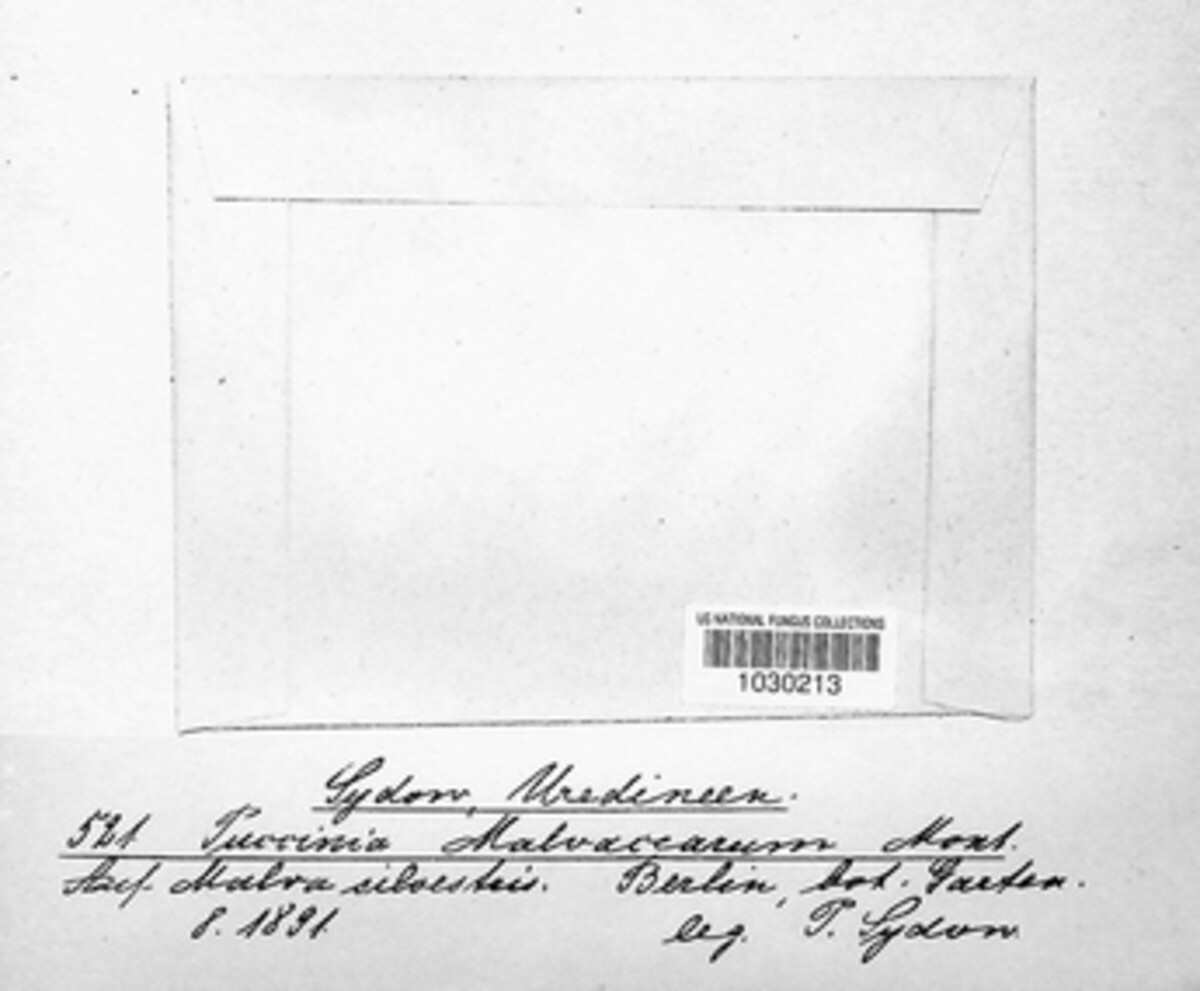 US NATIONAL FUNGUS COLLECTIONS
1030213
Sydow, Uredineen.
521 Puccinia Malvacearum Mont.
Auf Malva silvestris. Berlin, bot. Garten.
8. 1891. leg. P. Sydow.